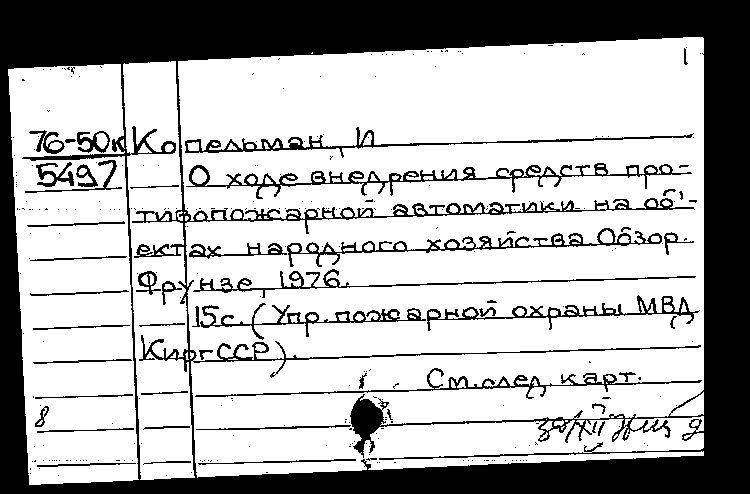 1
76-50к Копельман, И
5497 О ходе внедрения средств про-
тивопожарной автоматики на об'-
ектах народного хозяйства Обзор.
Фрунзе, 1976.
15с. (Упр. пожарной охраны МВД
КиргССР).
См. след. карт.
8